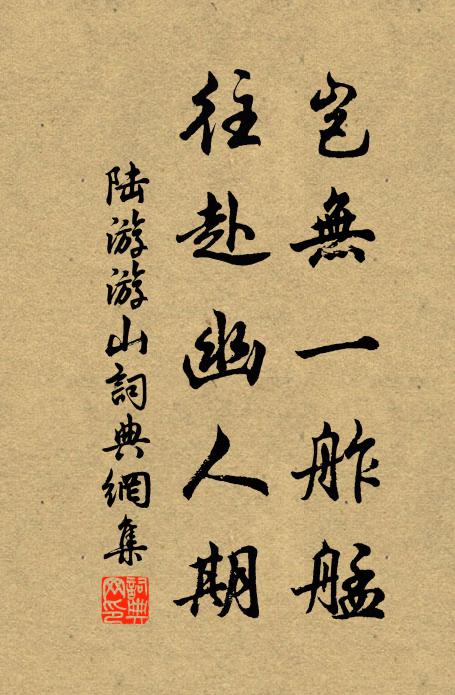 豈無一舴艋
往赴幽人期
陆游游山詞典網集
詞典网印